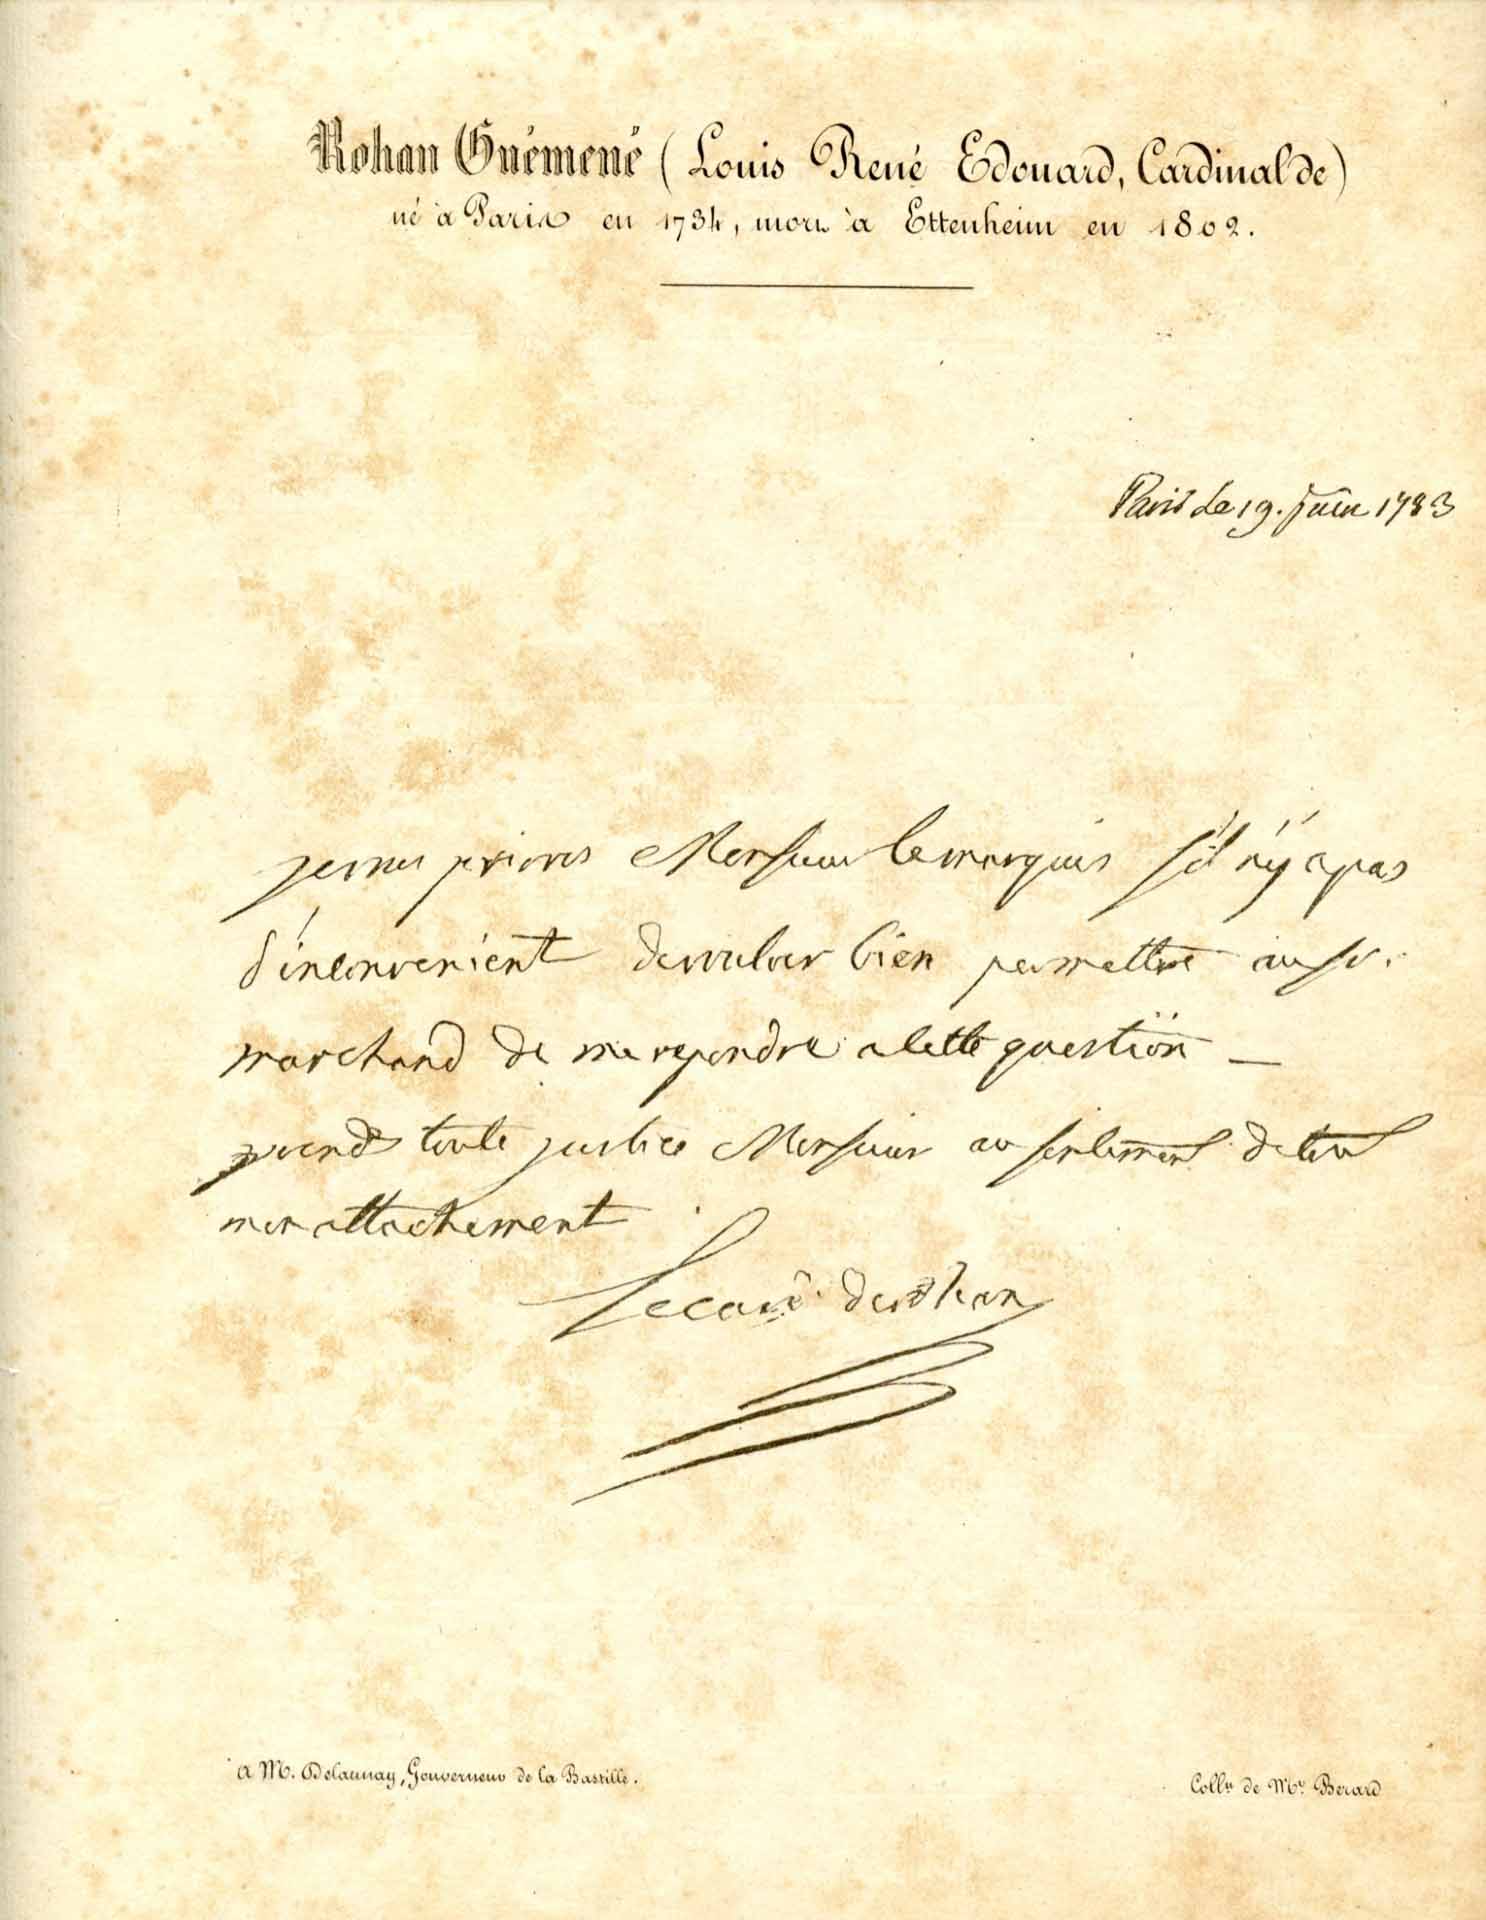 Rohan Guémené (Louis René Edouard, Cardinal de)
né à Paris en 1734, mort à Ettenheim en 1802.
Paris Le 19. juin 1783
je vous prie Monsieur le marquis s'il n'y a pas
d'inconvenient de vouloir bien permettre au Sr.
marchand de me repondre a cette question —
rendes toute justice Monsieur au sentiment de tout
mon attachement
Le card de rohan
A M. Delaunay, Gouverneur de la Bastille.
Collon de Mr. Berard